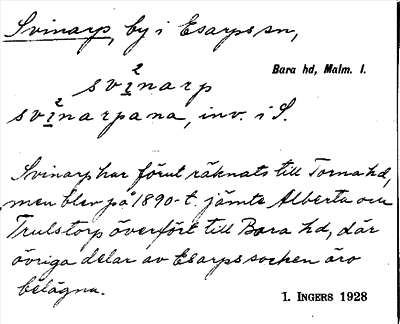 Svinarp, by i Esarps sn,
Bara hd, Malm. l.
svi²narp
svi²narpana, inv. i S.
Svinarp har förut räknats till Torna hd,
men blev på 1890-t. jämte Alberta och
Trulstorp överfört till Bara hd, där
övriga delar av Esarps socken äro
belägna.
I. INGERS 1928